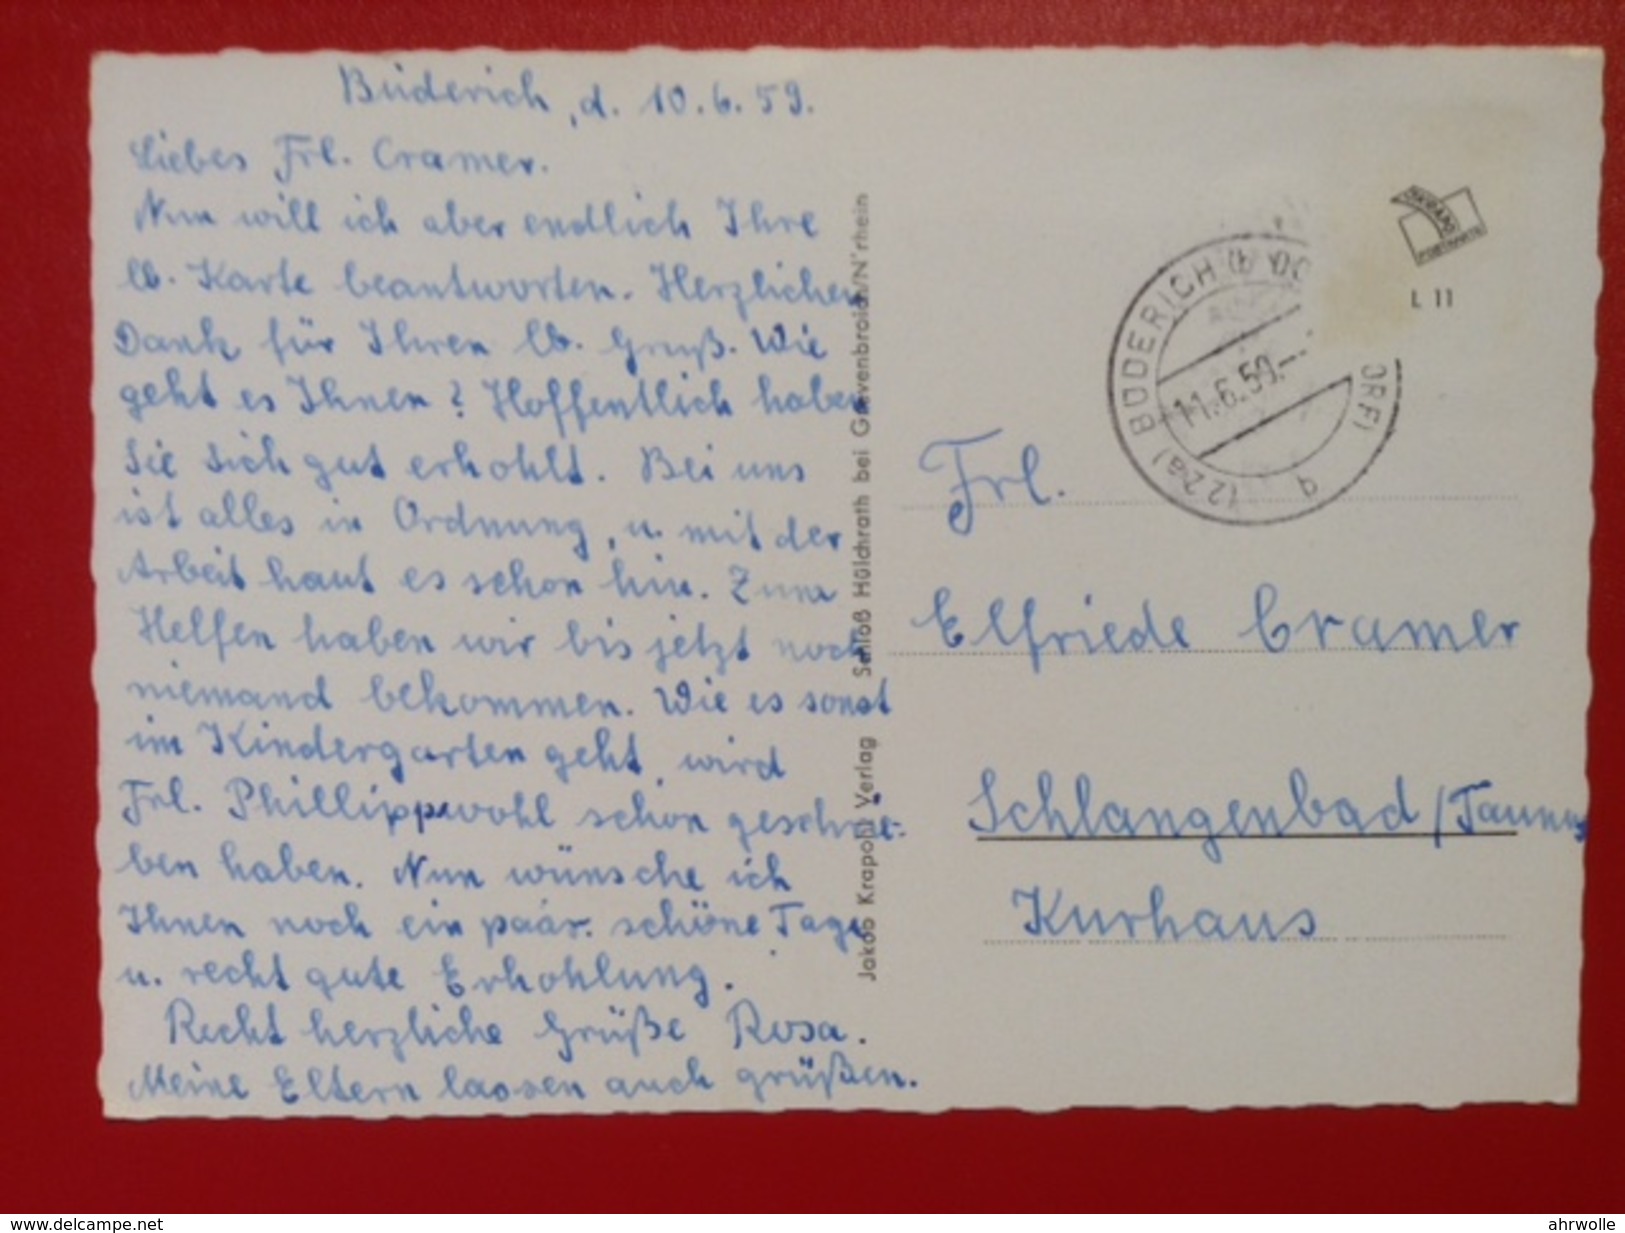 Büderich, d. 10.6.59.
Liebes Frl. Cramer.
Nun will ich aber endlich Ihre
lb. Karte beantworten. Herzlichen
Dank für Ihren lb. Gruß. Wie
geht es Ihnen? Hoffentlich haben
Sie sich gut erhohlt. Bei uns
ist alles in Ordnung, u. mit der
Arbeit haut es schon hin. Zum
Helfen haben wir bis jetzt noch
niemand bekommen. Wie es sonst
im Kindergarten geht, wird
Frl. Phillipp wohl schon geschrie-
ben haben. Nun wünsche ich
Ihnen noch ein paar schöne Tage
u. recht gute Erhohlung.
Recht herzliche Grüße Rosa.
Meine Eltern lassen auch grüßen.
Jakob Krapohl Verlag Schloß Hülchrath bei Grevenbroich/N'rhein
SKRAPO
POSTKARTE
L 11
(22a) BÜDERICH (b DÜ ORF)
11.6.59.–
b
Frl.
Elfriede Cramer
Schlangenbad/Taunus
Kurhaus
www.delcampe.net
ahrwolle